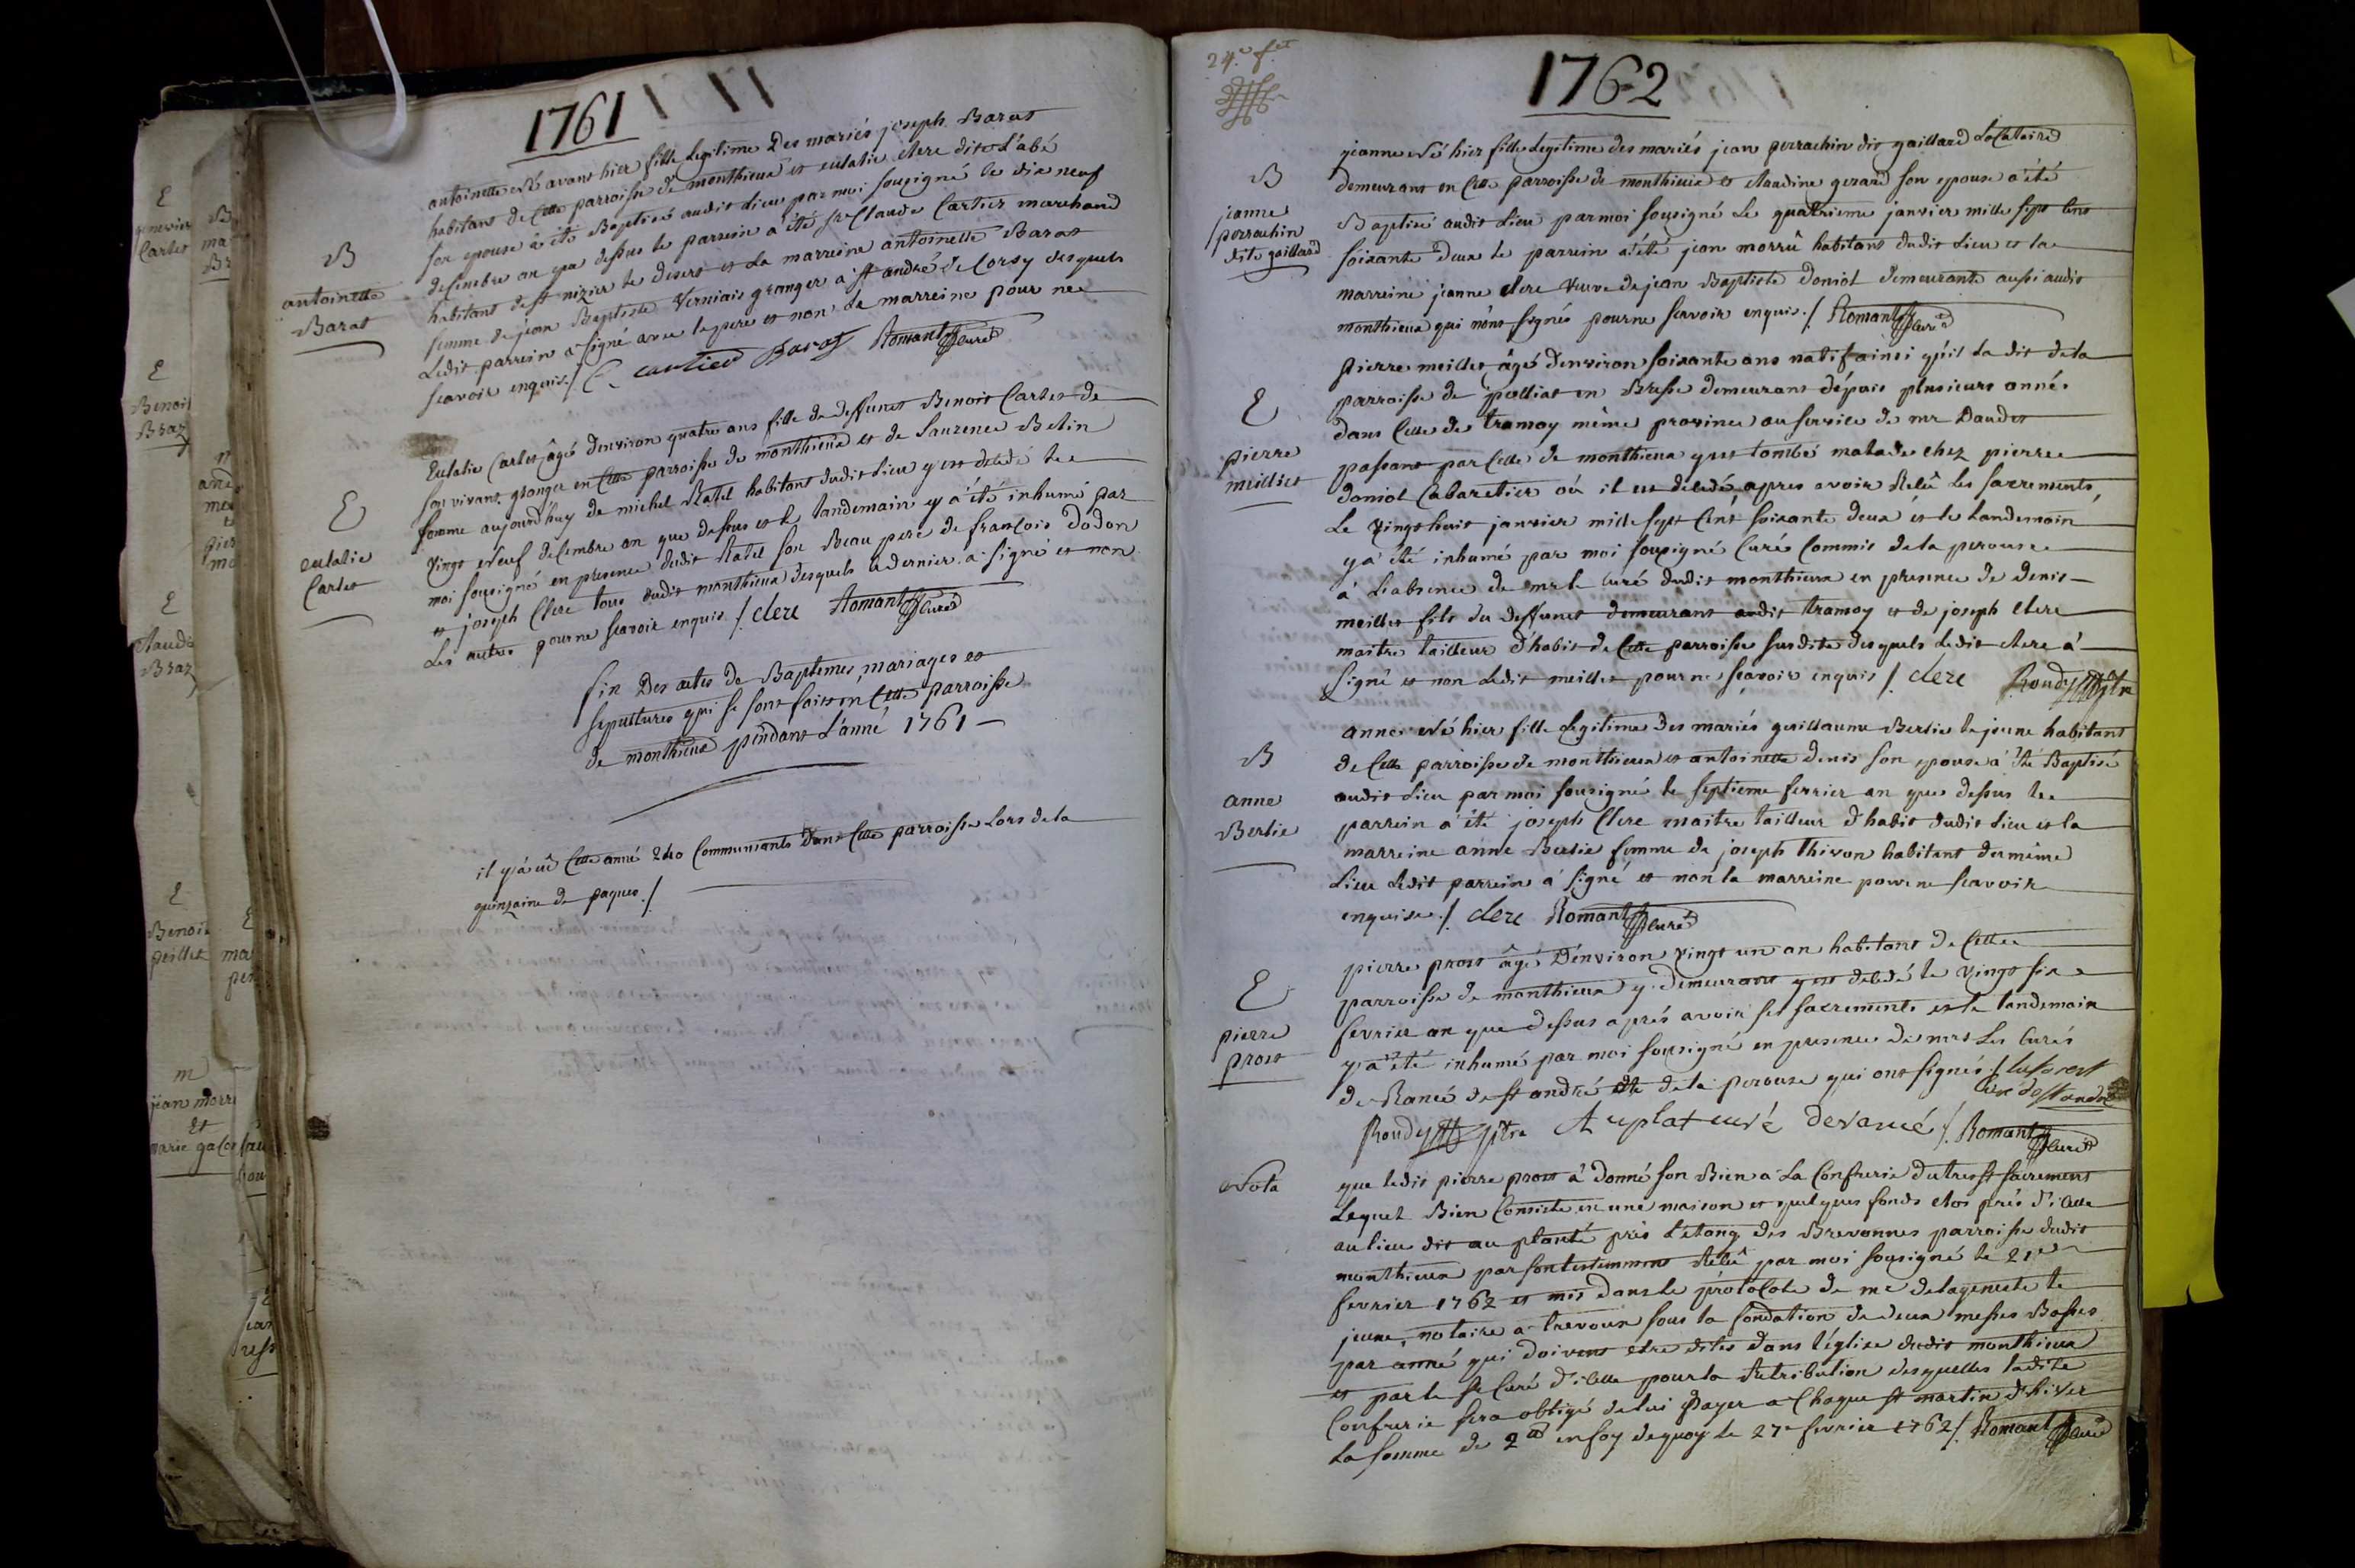 1761
B
antoinette
Barat
antoinette né avant hier fille Legitime Des mariés joseph Barat
habitant de Cette parroisse de monthieux et eulalie clere dite L'abé
son epouse à été Baptisé audit Lieu par moi sousigné le dix neuf
decembre an que dessus le parrein a été sr Claude Cartier marchand
habitant de st nizier le desert et La marreine antoinette Barat
femme de jean Baptiste Verniais granger a st andré de Corsy desquels
Ledit parrein a signé avec le pere et non La marreine pour ne
scavoir enquis ./. C. cartier Barat Romant Curé
E
eulalie
Carlet
Eulalie Carlet âgé d'environ quatre ans fille de deffunct Benoit Carlet de
son vivant granger en Cette parroisse de monthieux et de Laurence Belin
femme aujourdhuy de michel Ratel habitant dudit Lieu y est decedé le
vingt neuf decembre an que dessus et le Landemain y à été inhumé par
moi sousigné en presence dudit Ratel son Beau pere de francois Dodon
et joseph Clere tous dudit monthieux desquels ce dernier a signé et non
Les autres pour ne scavoir enquis ./. clere Romant Curé
fin Des actes de Baptemes, mariages et
sepultures qui se sont faits en Cette parroisse
de monthieux pendant L'anné 1761
il y à eû Cette anné 240 Communiants Dans Cette parroisse Lors de la
quinzaine de paques ./.
24.e f.et
1762
B
janne
perrachin
dite gaillard
jeanne né hier fille Legitime des mariés jean perrachin dit gaillard Locataire
demeurant en Cette parroisse de monthieux et claudine gerard son epouse a été
Baptisé audit Lieu par moi sousigné Le quatrieme janvier mille sept Cent
soixante deux le parrein a été jean morrû habitant dudit Lieu et la
marreine jeanne clere veuve de jean Baptiste Doniol demeurante aussi audit
monthieux qui n'ont signés pour ne scavoir enquis ./. Romant Curé
E
pierre
meillet
Pierre meillet âgé d'environ soixante ans natif ainsi qu'il La dit de la
parroisse de polliat en Bresse demeurant dépuis plusieurs année
dans Celle de tramoy même province au service de mr Daudet
passant par Celle de monthieux y est tombé malade chez pierre
doniol Cabaretier où il est decedé, apres avoir Recû Les sacrements,
Le vingt huit janvier mille sept Cent soixante deux et le Landemain
y à été inhumé par moi sousigné Curé Commis de la perouse
à L'absence de mr le Curé dudit monthieux en presence de Denis
meillet fils du deffunct demeurant audit tramoy et de joseph clere
maitre tailleur d'habit de Cette parroisse susdite desquels Ledit clere à
signé et non Ledit meillet pour ne scavoir enquis ./. clere Roudy ptre
B
anne
Berlie
anne né hier fille Legitime des mariés guillaume Berlie le jeune habitant
de Cette parroisse de monthieux et antoinette Denis son epouse a été Baptisé
audit Lieu par moi sousigné le septieme fevrier an que dessus le
parrein a été joseph Clere maitre tailleur d'habit dudit Lieu et la
marreine anne Berlie femme de joseph Thivon habitant du même
Lieu Ledit parrein à signé et non la marreine pour ne scavoir
enquise ./. clere Romant Curé
E
pierre
prost
pierre prost âgé D'environ vingt un an habitant de Cette
parroisse de monthieux y demeurant y est decedé le vingt six
fevrier an que dessus aprés avoir ses sacrements et le landemain
y a été inhumé par moi sousigné en presence de mrs Les Curés
de Rancé de st andré de la perouse qui ont signés ./.
Curé de st andré
Roudy ptre Auplat curé de rancé ./. Romant Curé
Nota
que ledit pierre prost à donné son Bien a La Confrerie du tres st sacrement
Lequel Bien Consiste en une maison et quelques fonds clos près d'icelle
au lieu dit au planté près L'étang des Brevonnes parroisse dudit
monthieux par son testemment Recû par moi sousigné le 21e
fevrier 1762 et mis dans le protocole de me delageneste le
jeune, notaire a trevoux sous la fondation de deux messes Basses
par anné qui doivent etre dites dans l'église dudit monthieux
et par le sr Curé d'icelle pour la Retribution desquelles ladite
Confrerie sera obligé de lui payer a Chaque st martin d'hiver
La somme de 2# en foy de quoy le 27e fevrier 1762 ./. Romant Curé
E
genevieve
Carlet
E
Benoit
Braz
E
Claudi
Braz
E
Benoit
peillet
m
jean morr
et
marie gacon